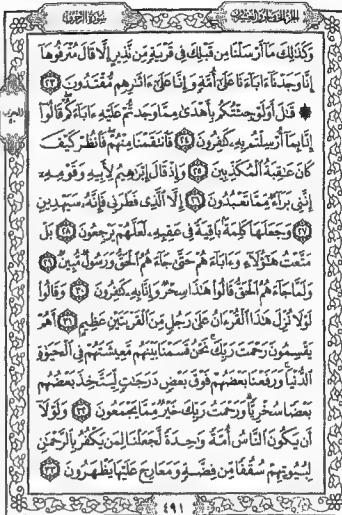 الجزء الخامس والعشرون
سورة الزخرف
وَكَذَٰلِكَ مَآ أَرْسَلْنَا مِن قَبْلِكَ فِي قَرْيَةٍ مِّن نَّذِيرٍ إِلَّا قَالَ مُتْرَفُوهَآ
إِنَّا وَجَدْنَآ ءَابَآءَنَا عَلَىٰٓ أُمَّةٍ وَإِنَّا عَلَىٰٓ ءَاثَٰرِهِم مُّقْتَدُونَ ٢٣
۞ قَٰلَ أَوَلَوْ جِئْتُكُم بِأَهْدَىٰ مِمَّا وَجَدتُّمْ عَلَيْهِ ءَابَآءَكُمْ قَالُوٓا۟
إِنَّا بِمَآ أُرْسِلْتُم بِهِۦ كَٰفِرُونَ ٢٤ فَٱنتَقَمْنَا مِنْهُمْ فَٱنظُرْ كَيْفَ
كَانَ عَٰقِبَةُ ٱلْمُكَذِّبِينَ ٢٥ وَإِذْ قَالَ إِبْرَٰهِيمُ لِأَبِيهِ وَقَوْمِهِۦٓ
إِنَّنِي بَرَآءٌ مِّمَّا تَعْبُدُونَ ٢٦ إِلَّا ٱلَّذِي فَطَرَنِي فَإِنَّهُۥ سَيَهْدِينِ
٢٧ وَجَعَلَهَا كَلِمَةًۢ بَاقِيَةً فِي عَقِبِهِۦ لَعَلَّهُمْ يَرْجِعُونَ ٢٨ بَلْ
مَتَّعْتُ هَٰٓؤُلَآءِ وَءَابَآءَهُمْ حَتَّىٰ جَآءَهُمُ ٱلْحَقُّ وَرَسُولٌ مُّبِينٌ ٢٩
وَلَمَّا جَآءَهُمُ ٱلْحَقُّ قَالُوا۟ هَٰذَا سِحْرٌ وَإِنَّا بِهِۦ كَٰفِرُونَ ٣٠ وَقَالُوا۟
لَوْلَا نُزِّلَ هَٰذَا ٱلْقُرْءَانُ عَلَىٰ رَجُلٍ مِّنَ ٱلْقَرْيَتَيْنِ عَظِيمٍ ٣١ أَهُمْ
يَقْسِمُونَ رَحْمَتَ رَبِّكَ نَحْنُ قَسَمْنَا بَيْنَهُم مَّعِيشَتَهُمْ فِي ٱلْحَيَوٰةِ
ٱلدُّنْيَا وَرَفَعْنَا بَعْضَهُمْ فَوْقَ بَعْضٍ دَرَجَٰتٍ لِّيَتَّخِذَ بَعْضُهُم
بَعْضًا سُخْرِيًّا وَرَحْمَتُ رَبِّكَ خَيْرٌ مِّمَّا يَجْمَعُونَ ٣٢ وَلَوْلَآ
أَن يَكُونَ ٱلنَّاسُ أُمَّةً وَٰحِدَةً لَّجَعَلْنَا لِمَن يَكْفُرُ بِٱلرَّحْمَٰنِ
لِبُيُوتِهِمْ سُقُفًا مِّن فِضَّةٍ وَمَعَارِجَ عَلَيْهَا يَظْهَرُونَ ٣٣
الحزب
٥٠
٤٩١